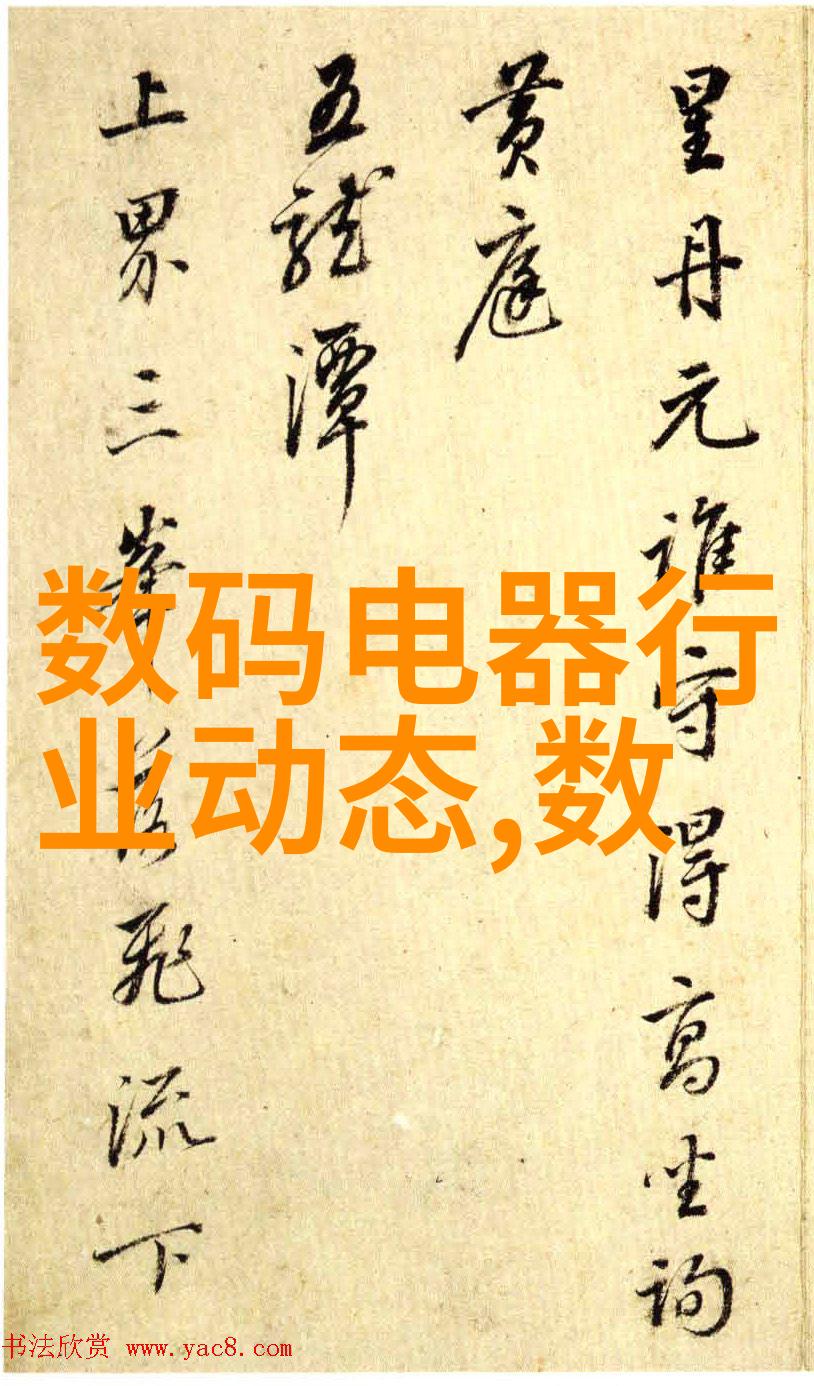 星丹元誰守得高坐詢
黄庭
五龍潭
上界三峯飛流下
数码电器行
业动态,数
书法欣赏 www.yac8.com